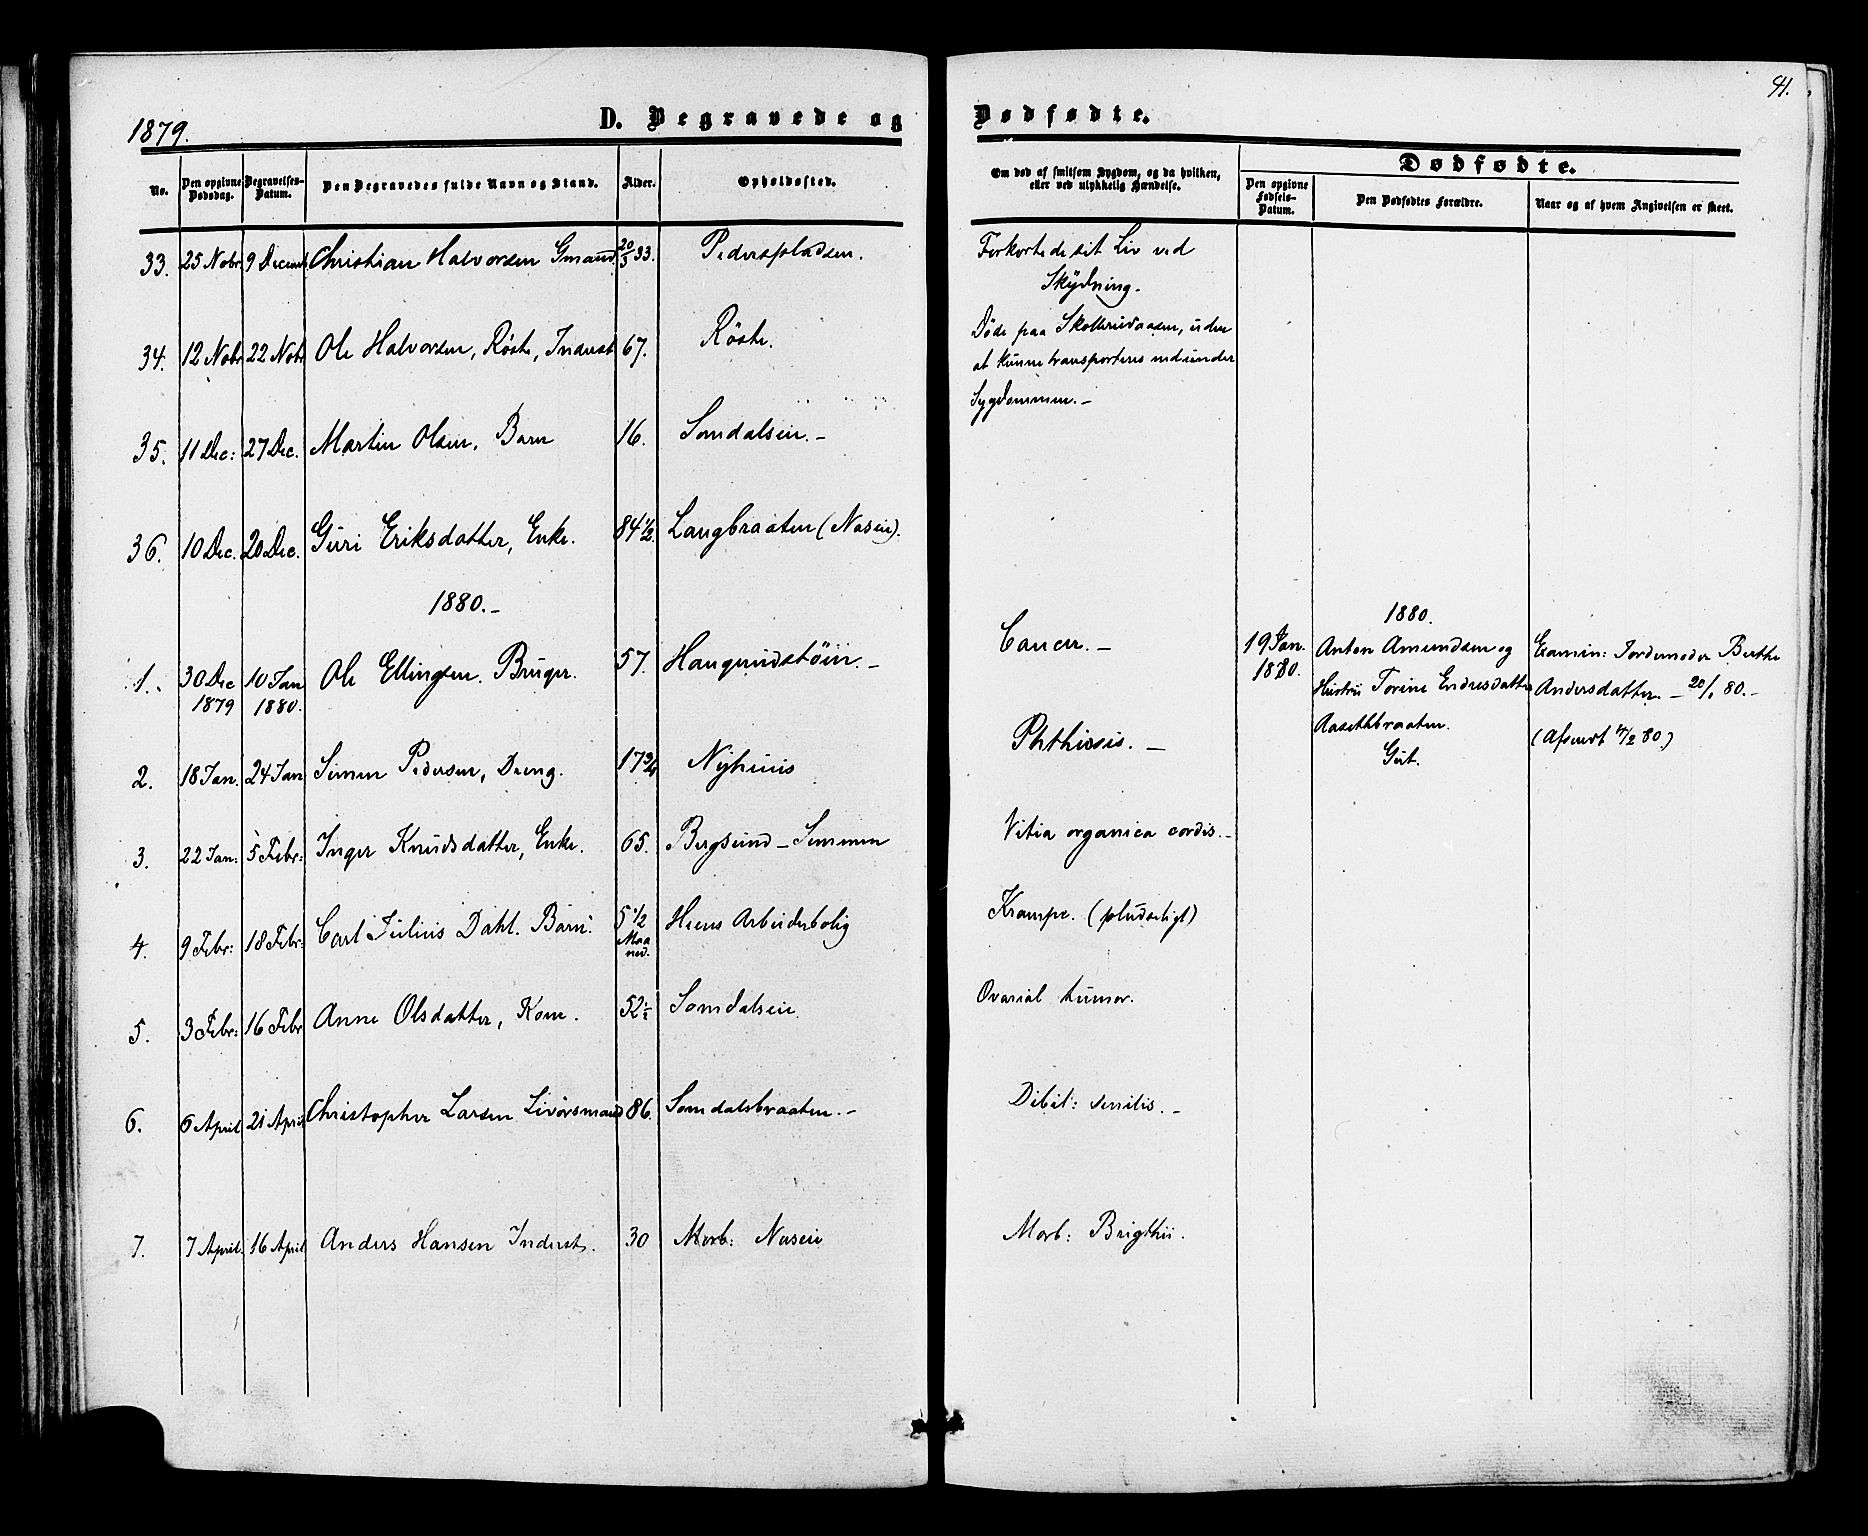 41.
1879.
D. Begravede og Dødfødte.
No.
Den opgivne Dødsdag.
Begravelses-Datum.
Den Begravedes fulde Navn og Stand.
Alder.
Opholdssted.
Om død af smitsom Sygdom, og da hvilken,
eller ved ulykkelig Hændelse.
Dødfødte.
Den opgivne Fødsels-Datum.
Den Dødfødtes Forældre.
Naar og af hvem Angivelsen er skeet.
33. 25 Nobr 9 Decemb Christian Halvorsen Gmand. 20/3 33. Pederspladsen. Forkortede sit Liv ved
Skydning.
34. 12 Nobr 22 Nobr Ole Halvorsen, Røste, Inderst 67. Røste. Døde paa Skollerudaasen, uden
at kunne transporteres ned under
Sygdommen. -
35. 11 Dec: 27 Dec. Martin Olsen, Barn 16. Somdalseie. -
36. 10 Dec. 20 Dec. Guri Eriksdatter, Enke. 84 1/2. Langbraaten (Naseie).
1880. -
1880.
1. 30 Dec 1879 10 Jan 1880. Ole Ellingsen. Bruger. 57. Haugrudstøen. - Cancer. -
19 Jan. 1880.
Anton Amundsen og
Hustru Torine Endresdatter
Aasethbraaten.
Gut.
Examin: Jordemoder Berthe
Andersdatter. - 20/1 80. -
(Afsendt /2 80.)
2. 18 Jan. 24 Jan Simen Pedersen, Dreng. 17 3/4 Nyhuus Phthissis. -
3. 22 Jan: 5 Febr: Inger Knudsdatter, Enke. 65. Bergsund - Semmen Vitia organica cordis. -
4. 9 Febr: 18 Febr: Carl Julius Dahl. Barn. 5 1/2 Maaned. Heens Arbeiderbolig Krampe. (pludseligt)
5. 3 Febr: 16 Febr Anne Olsdatter, Kone. 52 1/2 Somdalseie. Ovarial tumor.
6. 6 April 21 April Christopher Larsen Livørsmand 86. Somdalsbraaten. - Debil: senilis. -
7. 7 April. 16 April Anders Hansen Inderst. 30 Morb: Naseie Morb: Brigthii.